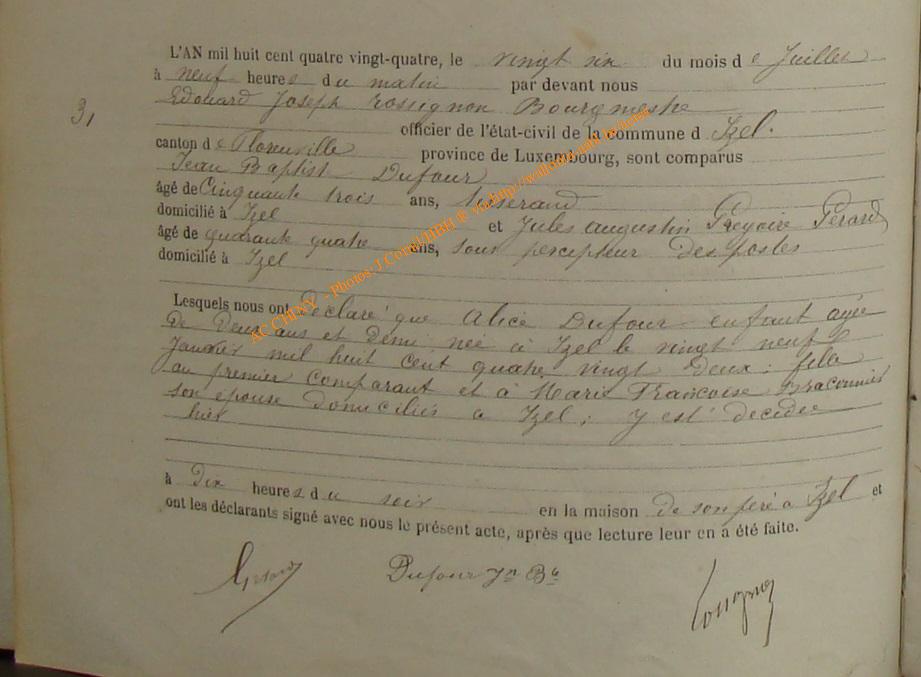 L'AN mil huit cent quatre vingt-quatre, le vingt six du mois de Juillet
à neuf heures du matin par devant nous
Edouard Joseph Rossignon Bourgmestre
3,
officier de l'état-civil de la commune d Izel.
canton de Florenville province de Luxembourg, sont comparus
Jean Baptiste Dufour
âgé de Cinquante trois ans, tisserand
domicilié à Izel et Jules augustin Grégoire Gérard
âgé de quarante quatre ans, sous percepteur des postes
domicilié à Izel
Lesquels nous ont déclaré que Alice Dufour enfant agée
de Deux ans et demi née à Izel le vingt neuf
Janvier mil huit cent quatre vingt deux ; fille
au premier comparant et à Marie Francoise Braconnier
son épouse domiciliés a Izel ; y est décédée
hier
à Dix heures du soir en la maison de son père a Izel et
ont les déclarants signé avec nous le présent acte, après que lecture leur en a été faite.
Gérard Dufour Jn Bte Rossignon
AC CHINY - Photos: J Cornil/HBH @ via http://wallonia.asbl.be/long